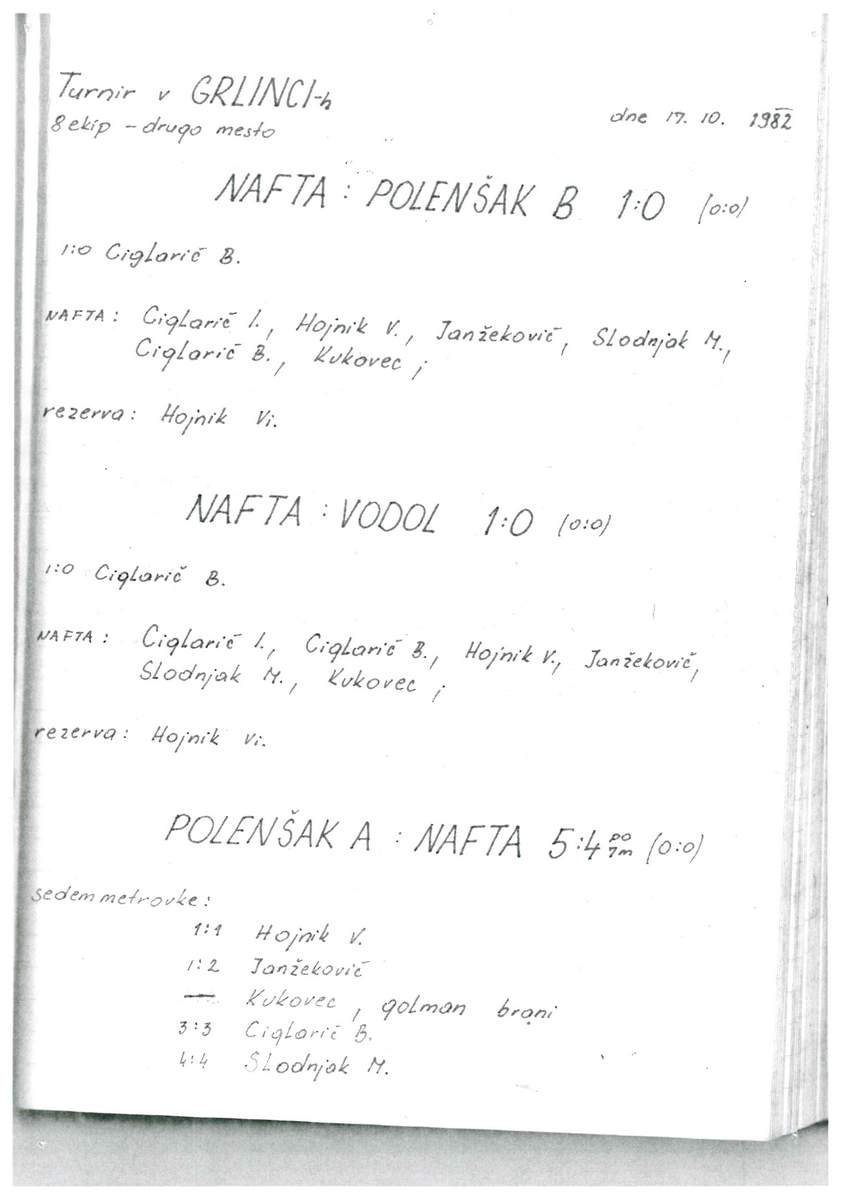 Turnir v GRLINCI-h
8 ekip - drugo mesto
dne 17. 10. 1982
NAFTA : POLENŠAK B 1:0 (0:0)
1:0 Ciglarič B.
NAFTA: Ciglarič I., Hojnik V., Janžekovič, Slodnjak M.,
Ciglarič B., Kukovec ;
rezerva: Hojnik Vi.
NAFTA : VODOL 1:0 (0:0)
1:0 Ciglarič B.
NAFTA: Ciglarič I., Ciglarič B., Hojnik V., Janžekovič,
Slodnjak M., Kukovec ;
rezerva: Hojnik Vi.
POLENŠAK A : NAFTA 5:4 po 7m (0:0)
sedemmetrovke:
1:1 Hojnik V.
1:2 Janžekovič
— Kukovec, golman brani
3:3 Ciglarič B.
4:4 Slodnjak M.